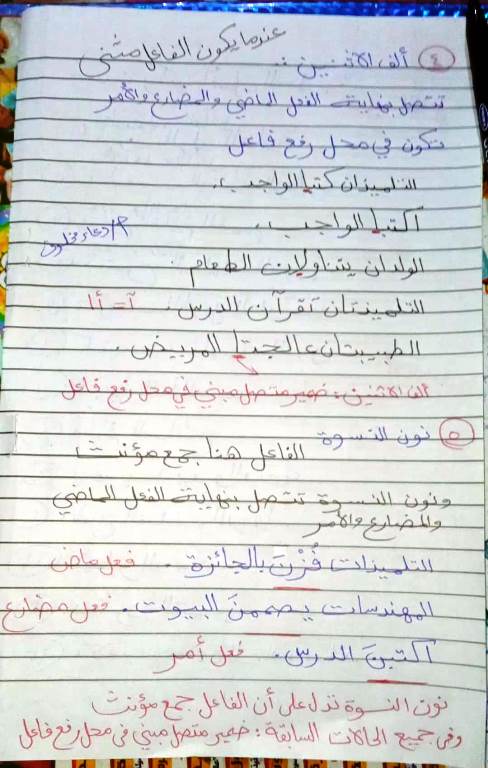 عندما يكون الفاعل مثنى
٤ ألف الاثنين :
تتصل بنهاية الفعل الماضي والمضارع والأمر
تكون في محل رفع فاعل
التلميذان كتبا الواجب.
اكتبا الواجب.
الولدان يتناولان الطعام.
التلميذتان تقرآن الدرس. آ = أا
الطبيبتان عالجتا المريض.
ألف الاثنين : ضمير متصل مبني في محل رفع فاعل
٥ نون النسوة
الفاعل هنا جمع مؤنث
ونون النسوة تتصل بنهاية الفعل الماضي
والمضارع والأمر
التلميذات فُزْنَ بالجائزة. فعل ماض
المهندسات يصممنَ البيوت. فعل مضارع
اكتبنَ الدرس. فعل أمر
نون النسوة تدل على أن الفاعل جمع مؤنث
وفى جميع الحالات السابقة : ضمير متصل مبني فى محل رفع فاعل